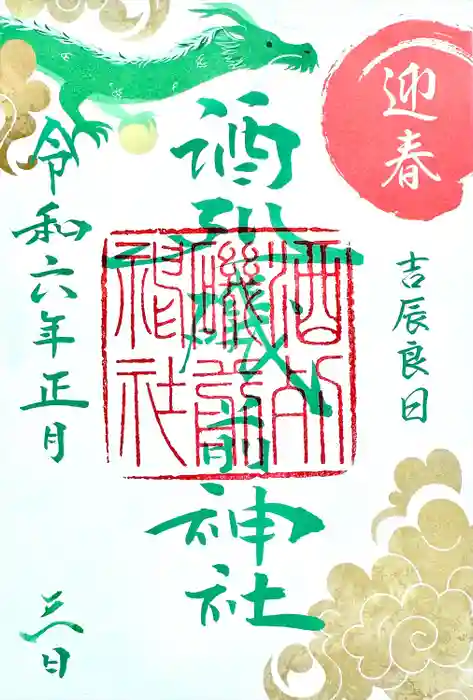 迎春
吉辰良日
酒列磯前神社
酒列
磯前
神社
令和六年正月
日